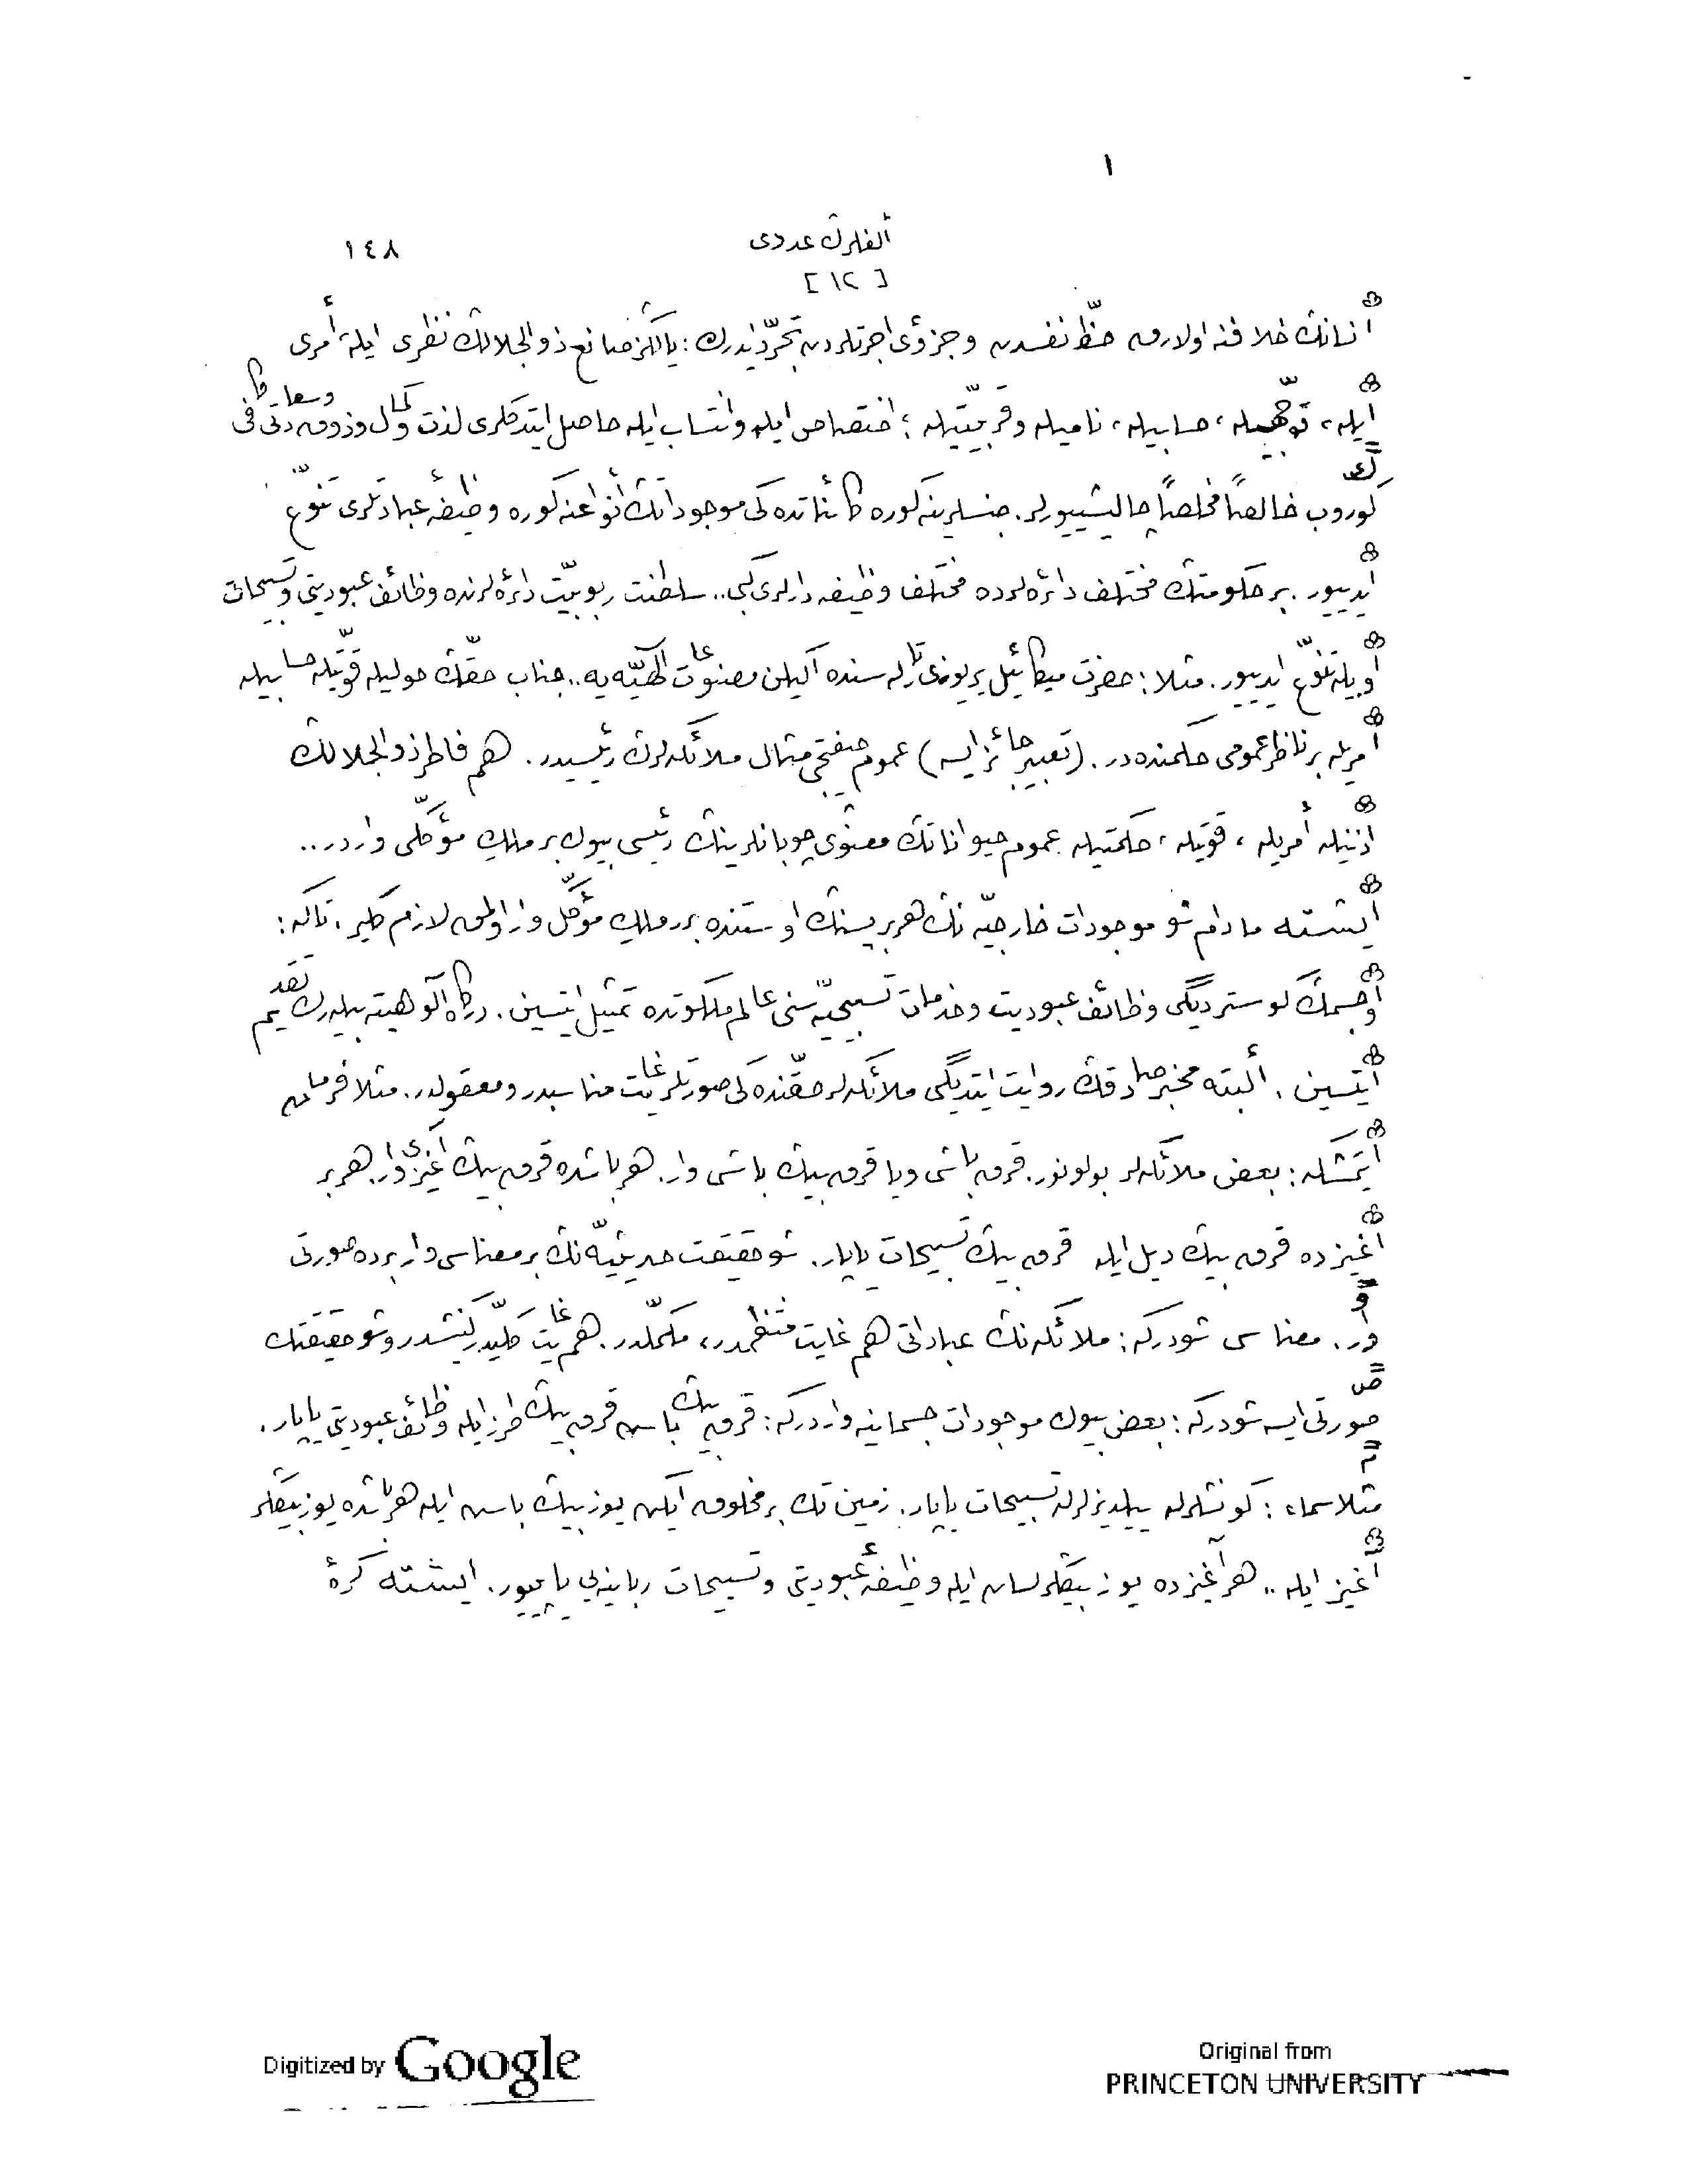 ١
ألفلرك عددى ١٤٨
[١٢]
انسانك خلافنه اولارق حظّ نفسدن و جزؤى اجرتلردن تجرّد ايدرك: يالڭز صانع ذو الجلالك نظرى ايله، أمرى
ايله، توجّهيله، حسابيله، ناميله و قربيّتيله؛ اختصاص ايله و انتساب ايله حاصل ايتدكلرى لذت و كمال و ذوق و سعادتى كافى
گوروب خالصاً مخلصاً چاليشييورلر. جنسلرينه گوره كائناتده كى موجوداتڭ أنواعنه گوره وظيفۀ عبادتلرى تنوّع
ايدييور. بر حكومتڭ مختلف دائره لرده مختلف وظيفه دارلرى گبى.. سلطنت ربوبيّت دائره لرنده وظائف عبوديتى و تسبيحات
اويله تنوّع ايدييور. مثلا: حضرت ميكائيل ير يوزى تارله سنده أكيلن مصنوعات الٰهيّه يه.. جناب حقّڭ حوليله قوّتيله حسابيله
أمريله بر ناظر عمومى حكمنده در. (تعبير جائز ايسه) عموم چفتجى مثال ملائكه لرڭ رئيسيدر. هم فاطر ذو الجلالڭ
اذنيله أمريله، قوّتيله، حكمتيله عموم حيواناتڭ معنوى چوبانلرينڭ رئيسى بيوك بر ملك مؤكّلى واردر..
ايشته مادام شو موجودات خارجيّه نڭ هر بريسنڭ اوستنده برر ملك مؤكّل وار اولمق لازم گلير. تاكه:
او جسمڭ گوسترديگى وظائف عبوديت و خدمات تسبيحيّه سنى عالم ملكوتده تمثيل ايتسين. درگاه الوهيته بيله رك تقديم
ايتسين. ألبته مخبر صادقڭ روايت ايتديگى ملائكه لر حقّنده كى صورتلر غايت مناسبدر و معقولدر. مثلا فرمان
ايتمشكه: بعض ملائكه لر بولونور. قرق باشى ويا قرق بيڭ باشى وار. هر باشده قرق بيڭ آغيزى وار. هر بر
آغيزده قرق بيڭ ديل ايله قرق بيڭ تسبيحات ياپار. شو حقيقت حديثيّه نڭ بر معناسى وار بر ده صورتى
وار. معناسى شودركه: ملائكه نڭ عباداتى هم غايت منتظمدر، مكمّلدر. هم غايت كليّدر گنيشدر و شو حقيقتڭ
صورتى ايسه شودركه: بعض بيوك موجودات جسمانيه واردركه: قرق بيڭ باش قرق بيڭ طرز ايله وظائف عبوديتى ياپار.
مثلا سماء: گونشلرله ييلديزلرله تسبيحات ياپار. زمين تك بر مخلوق ايكن يوز بيڭ باش ايله هر باشده يوز بيڭلر
آغيز ايله.. هر آغيزده يوز بيڭلر لسان ايله وظيفۀ عبوديتى و تسبيحات ربانيه يى ياپييور. ايشته كرۀ
Digitized by Google
Original from
PRINCETON UNIVERSITY